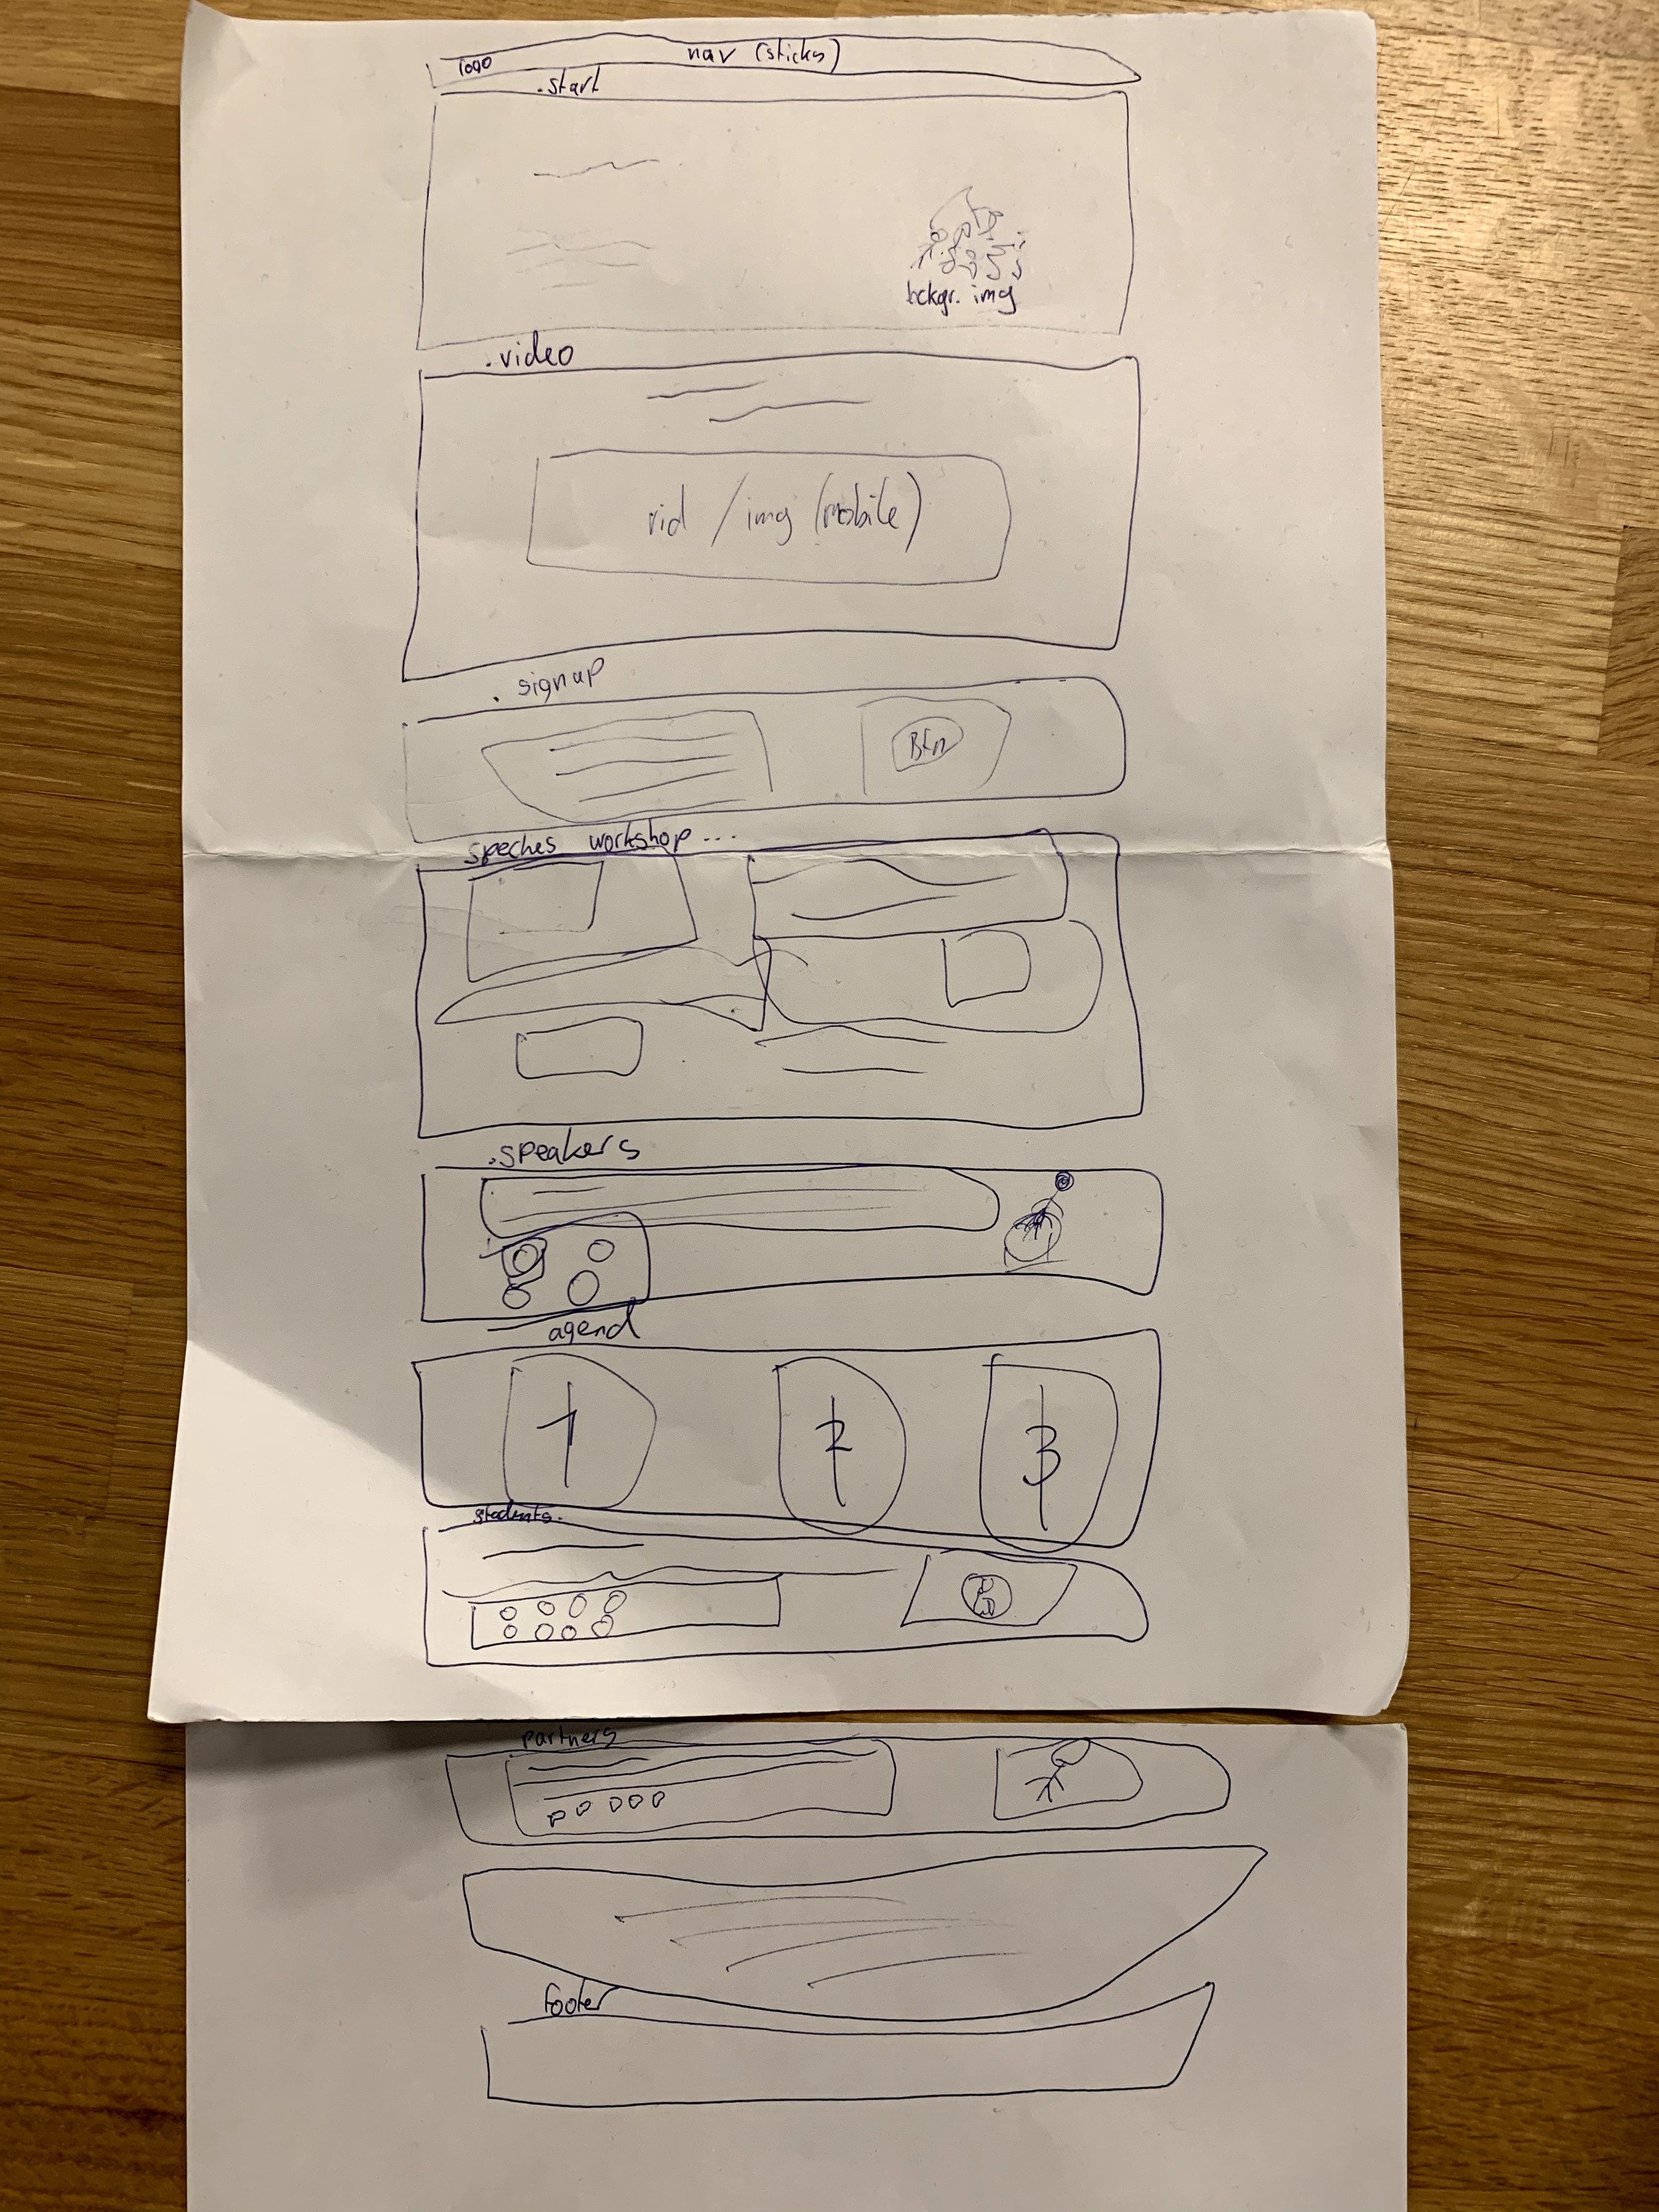 logo nav (sticky)
.start
bckgr. img
.video
vid / img (mobile)
. signup
Btn
speches workshop ...
.speakers
agend
1 2 3
students.
partners
footer